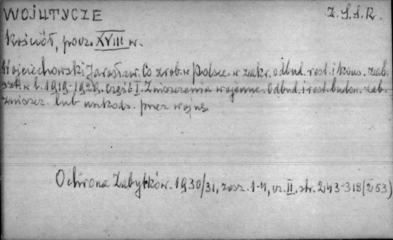 WOJUTYCZE Z.S.S.R.
Kościół, pocz. XVIII w.
Wojciechowski Jarosław. Co zrob. w Polsce w zakr. odbud. rest. i kons. zab.
szt. w l. 1919-1929. Część I. Zniszczenia wojenne. Odbud. i rest. budow. zab.
zniszcz. lub uszkodz. przez wojnę
Ochrona Zabytków. 1930/31, zesz. 1-4, cz. II. str. 243-318 (263)